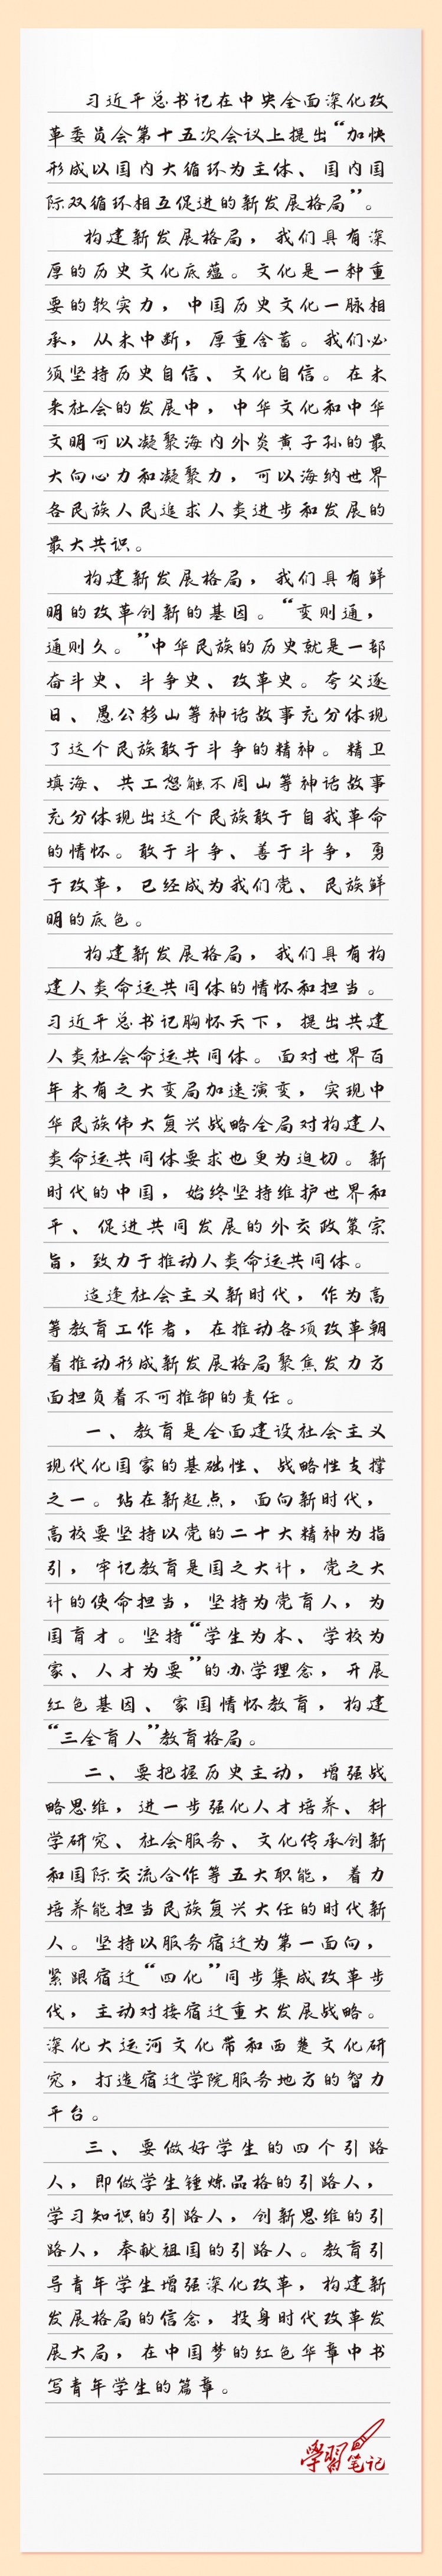 习近平总书记在中央全面深化改
革委员会第十五次会议上提出“加快
形成以国内大循环为主体、国内国
际双循环相互促进的新发展格局”。
构建新发展格局，我们具有深
厚的历史文化底蕴。文化是一种重
要的软实力，中国历史文化一脉相
承，从未中断，厚重含蓄。我们必
须坚持历史自信、文化自信。在未
来社会的发展中，中华文化和中华
文明可以凝聚海内外炎黄子孙的最
大向心力和凝聚力，可以海纳世界
各民族人民追求人类进步和发展的
最大共识。
构建新发展格局，我们具有鲜
明的改革创新的基因。“变则通，
通则久。”中华民族的历史就是一部
奋斗史、斗争史、改革史。夸父逐
日、愚公移山等神话故事充分体现
了这个民族敢于斗争的精神。精卫
填海、共工怒触不周山等神话故事
充分体现出这个民族敢于自我革命
的情怀。敢于斗争、善于斗争，勇
于改革，已经成为我们党、民族鲜
明的底色。
构建新发展格局，我们具有构
建人类命运共同体的情怀和担当。
习近平总书记胸怀天下，提出共建
人类社会命运共同体。面对世界百
年未有之大变局加速演变，实现中
华民族伟大复兴战略全局对构建人
类命运共同体要求也更为迫切。新
时代的中国，始终坚持维护世界和
平、促进共同发展的外交政策宗
旨，致力于推动人类命运共同体。
适逢社会主义新时代，作为高
等教育工作者，在推动各项改革朝
着推动形成新发展格局聚焦发力方
面担负着不可推卸的责任。
一、教育是全面建设社会主义
现代化国家的基础性、战略性支撑
之一。站在新起点，面向新时代，
高校要坚持以党的二十大精神为指
引，牢记教育是国之大计，党之大
计的使命担当，坚持为党育人，为
国育才。坚持“学生为本、学校为
家、人才为要”的办学理念，开展
红色基因、家国情怀教育，构建
“三全育人”教育格局。
二、要把握历史主动，增强战
略思维，进一步强化人才培养、科
学研究、社会服务、文化传承创新
和国际交流合作等五大职能，着力
培养能担当民族复兴大任的时代新
人。坚持以服务宿迁为第一面向，
紧跟宿迁“四化”同步集成改革步
伐，主动对接宿迁重大发展战略。
深化大运河文化带和西楚文化研
究，打造宿迁学院服务地方的智力
平台。
三、要做好学生的四个引路
人，即做学生锤炼品格的引路人，
学习知识的引路人，创新思维的引
路人，奉献祖国的引路人。教育引
导青年学生增强深化改革，构建新
发展格局的信念，投身时代改革发
展大局，在中国梦的红色华章中书
写青年学生的篇章。
學習笔记